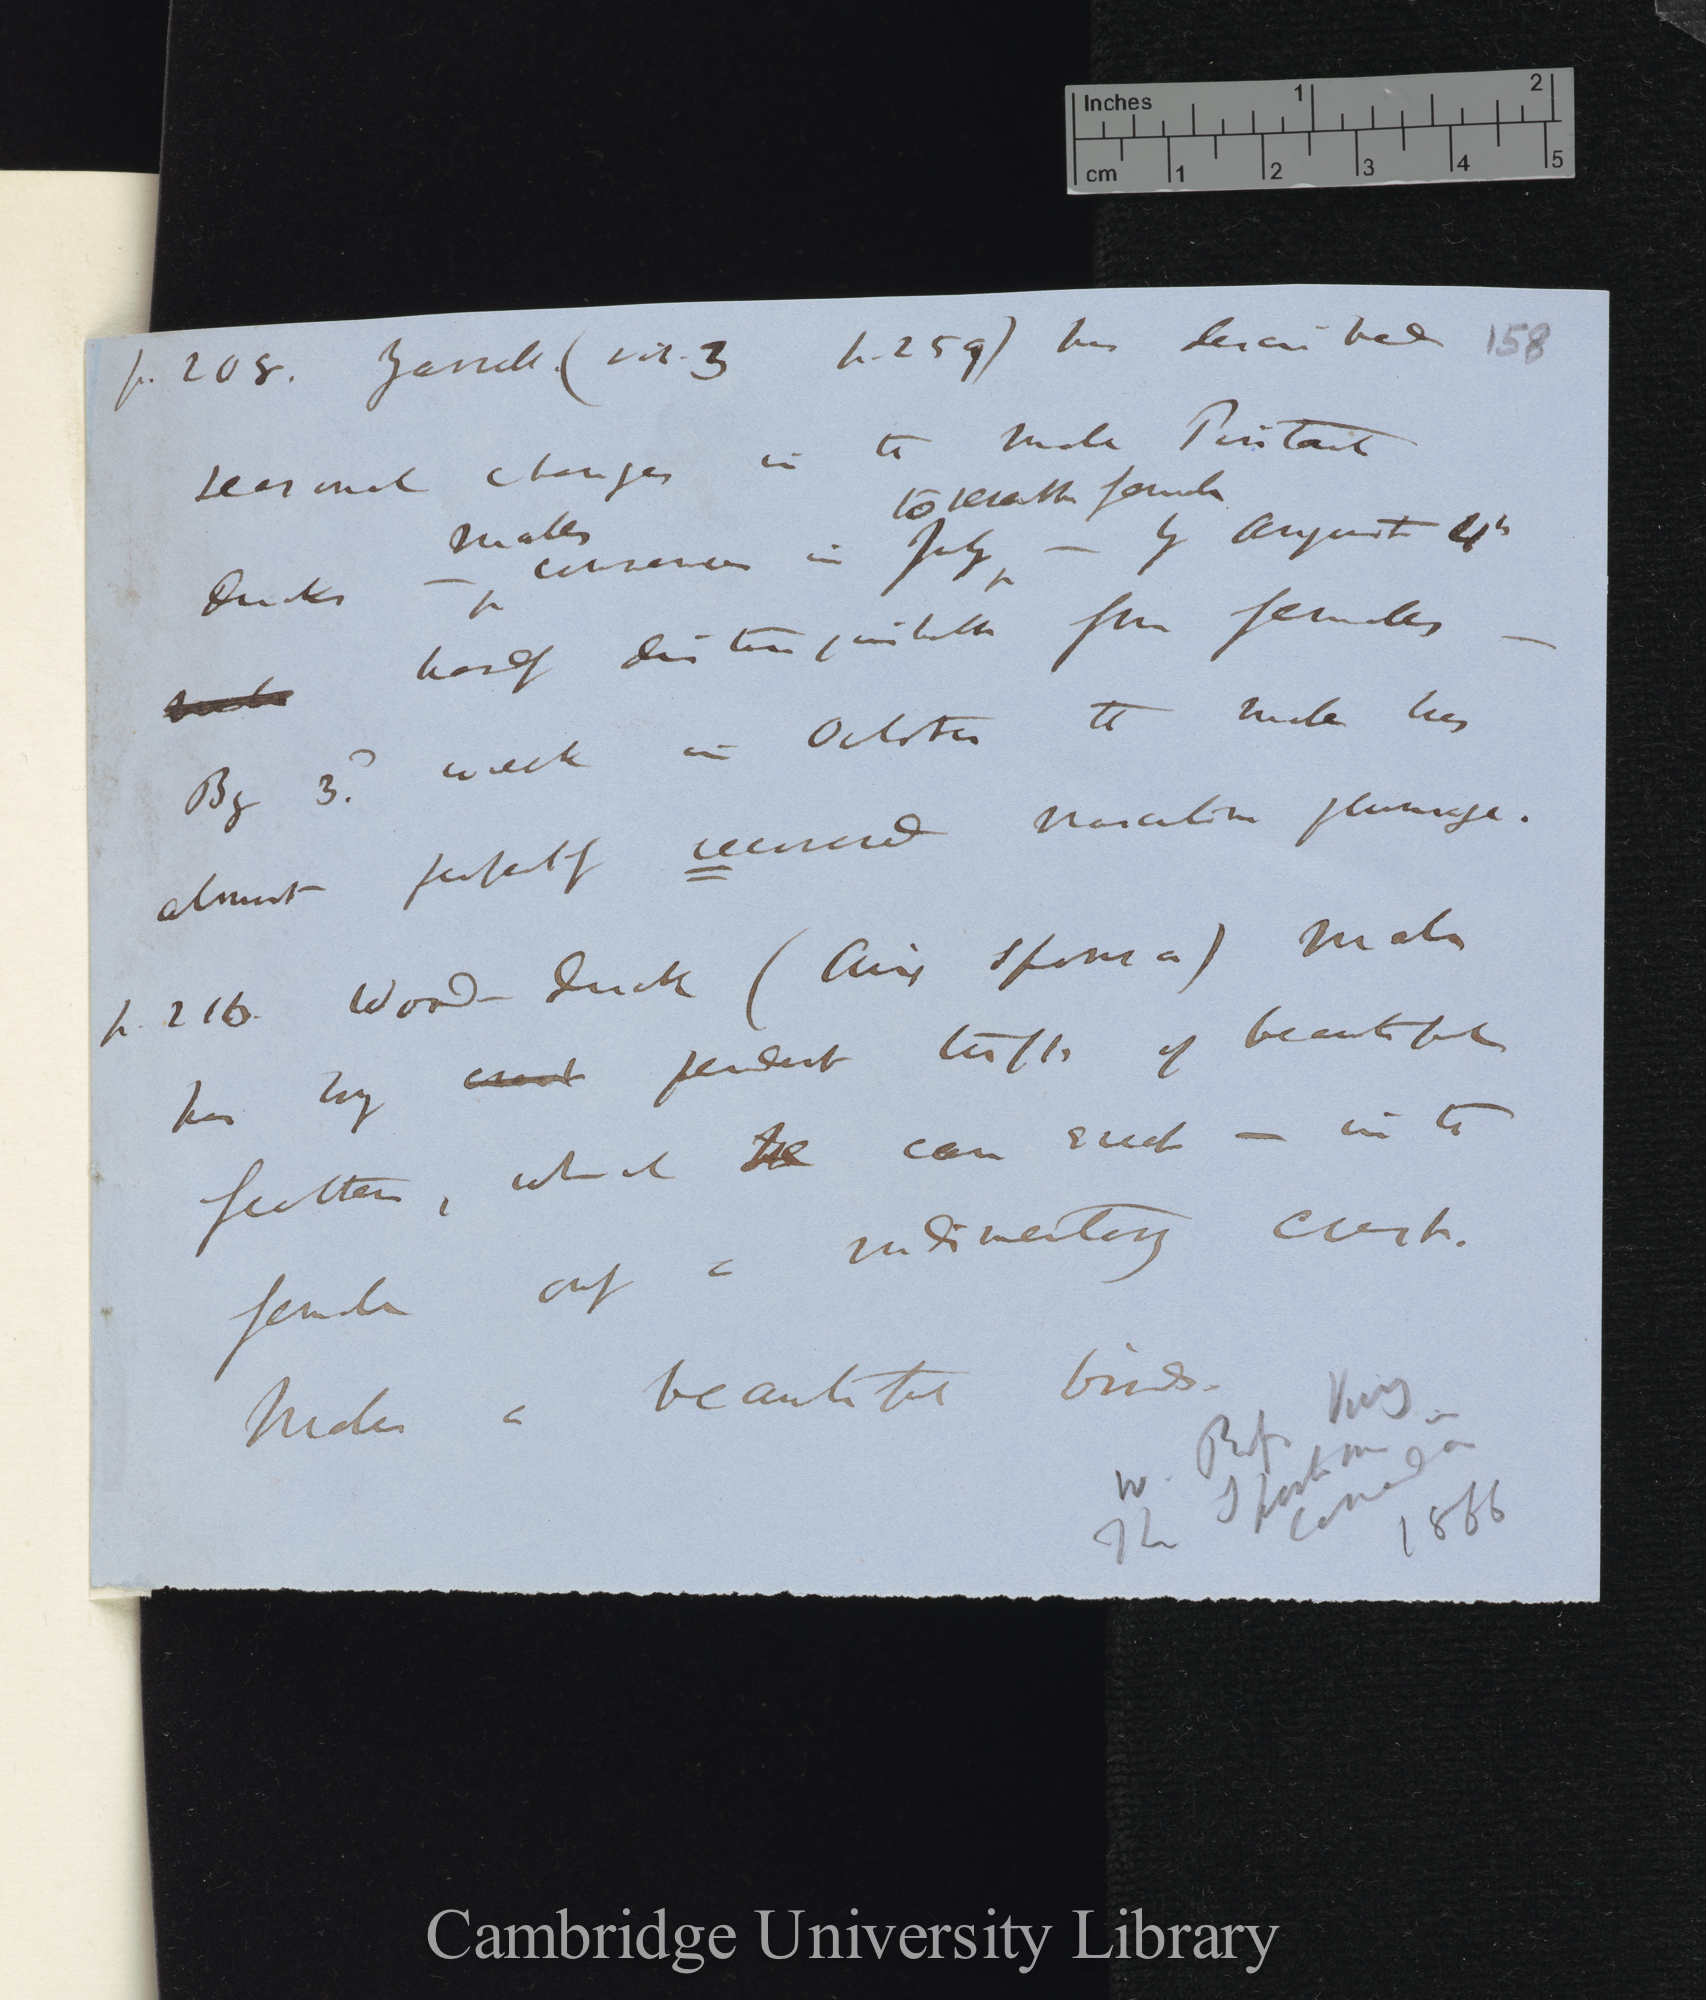 Inches 1 2
cm 1 2 3 4 5
158
p. 208. Yarrell (vol. 3 p. 259) has described
seasonal changes in the male Pintail
ducks — males commences in July to resemble female — by August 4th
hardly distinguishable from females —
By 3d week in October the male has
almost perfectly recovered masculine plumage.
p. 216. Wood-Duck (Aix sponsa) Male
has long crest pendent tufts of beautiful
feathers, which he can erect — in the
female only a rudimentary crest.
Male a beautiful bird.
W. Ross King
The Sportsman in
Canada
1866
Cambridge University Library